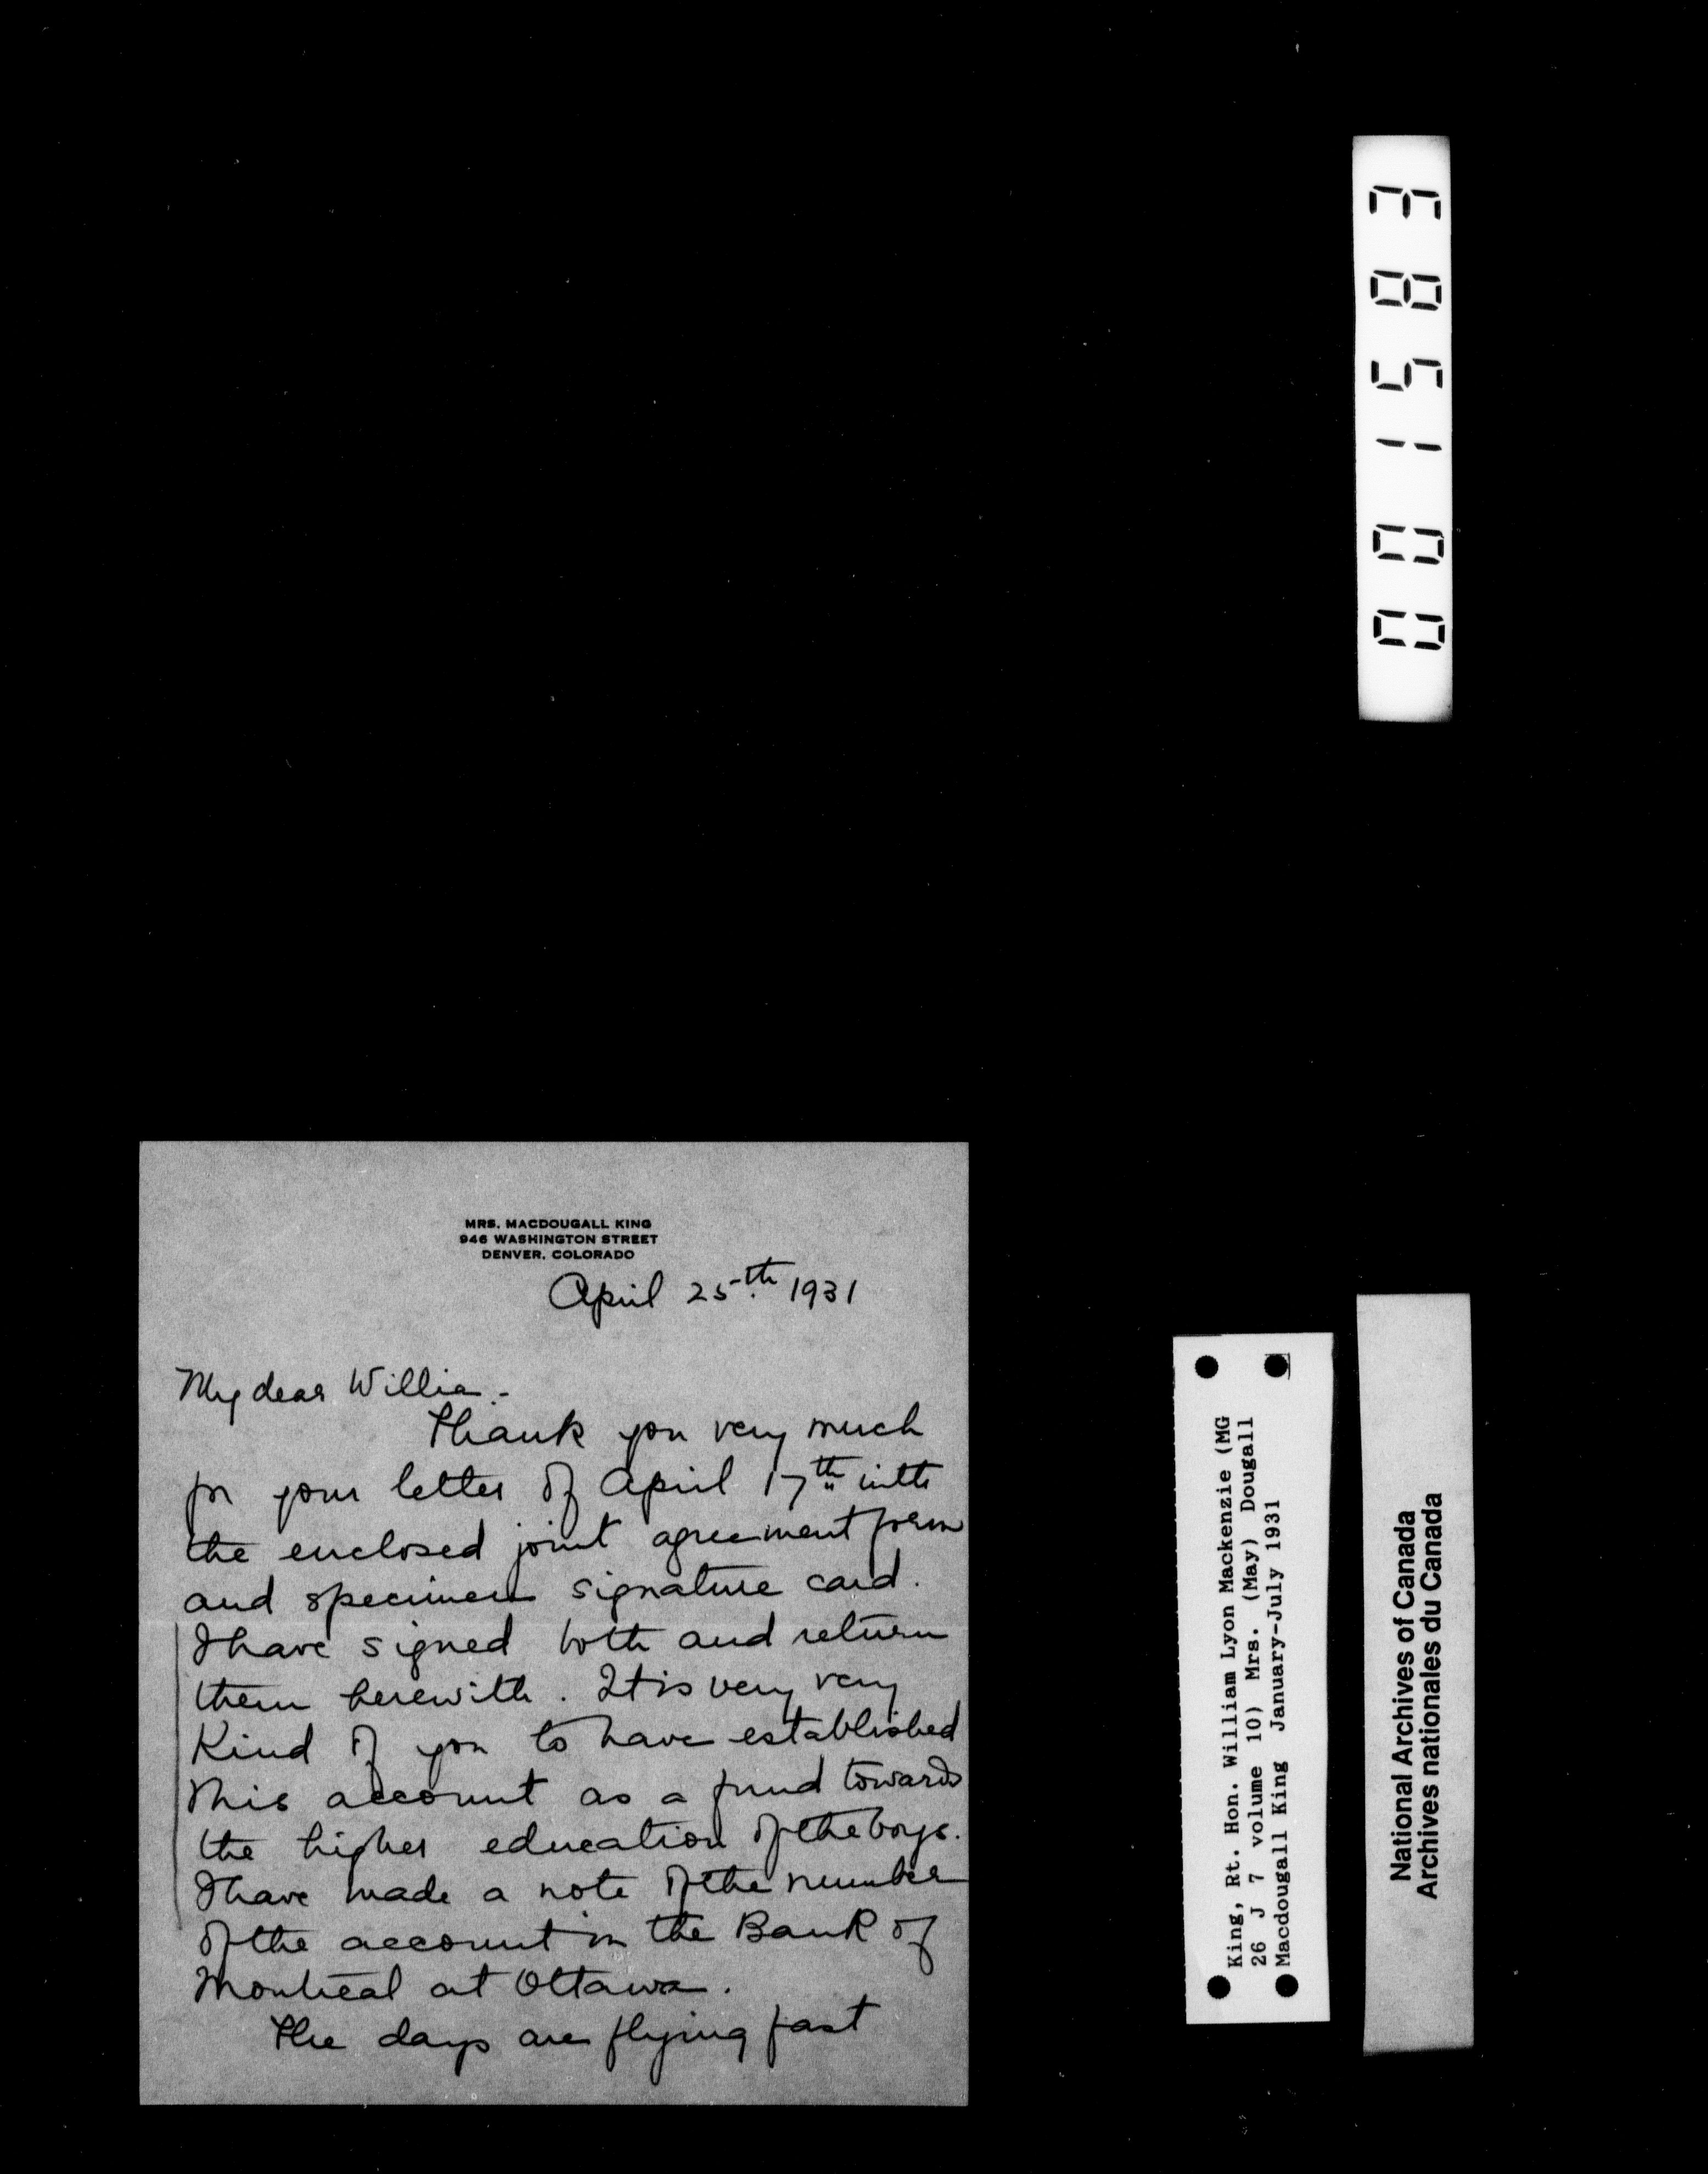 001583
MRS. MACDOUGALL KING
946 WASHINGTON STREET
DENVER, COLORADO
April 25th 1931
My dear Willie -
Thank you very much
for your letter of April 17th with
the enclosed joint agreement form
and specimen signature card.
I have signed both and return
them herewith. It is very very
Kind of you to have established
this account as a fund towards
the higher education of the boys.
I have made a note of the number
of the account in the Bank of
Montreal at Ottawa.
The days are flying fast
King, Rt. Hon. William Lyon Mackenzie (MG
26 J 7 volume 10) Mrs. (May) Dougall
Macdougall King January-July 1931
National Archives of Canada
Archives nationales du Canada